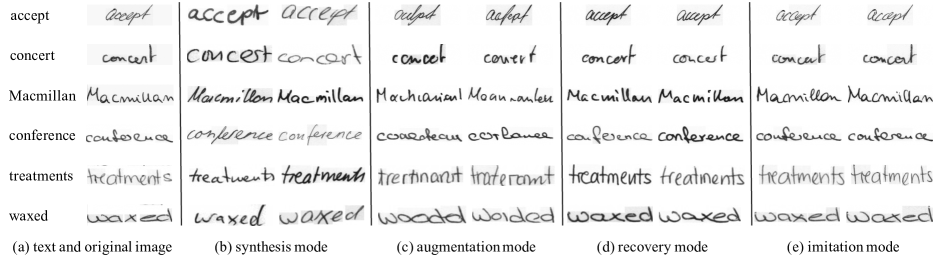 accept accept accept accept aculpt aufept accept accept accept accept
concert concert concert concert concet convert concert concert concert concert
Macmillan Macmillan Macmillan Macmillan Macmillan Macmillan Macmillan Macmillan
conference conference conference conference conference conference conference conference
treatments treatments treatments treatments treatments treatments treatments treatments
waxed waxed waxed waxed woodd worded waxed waxed waxed waxed
(a) text and original image (b) synthesis mode (c) augmentation mode (d) recovery mode (e) imitation mode